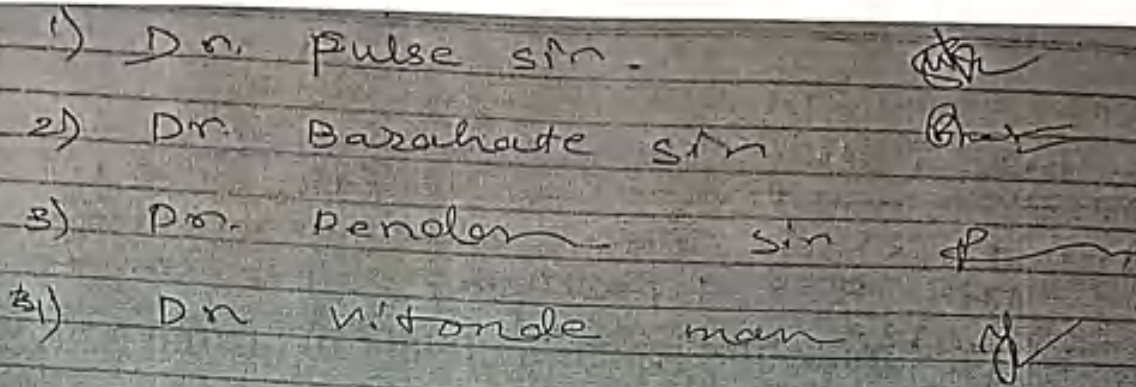 1) Dr. Pulse sir.
2) Dr. Barahate sir
3) Dr. Pendor sir
4) Dr Nitonde mam